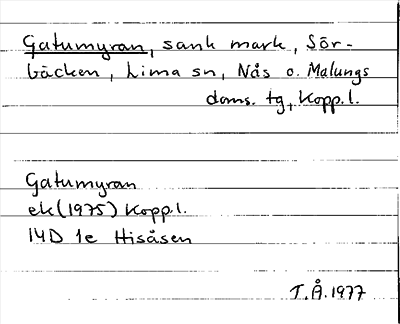 Gatumyran, sank mark, Sör-
bäcken, Lima sn, Nås o. Malungs
doms. tg, Kopp.l.
Gatumyran
ek(1975) Kopp.l.
14D 1e Hisåsen
T.Å.1977